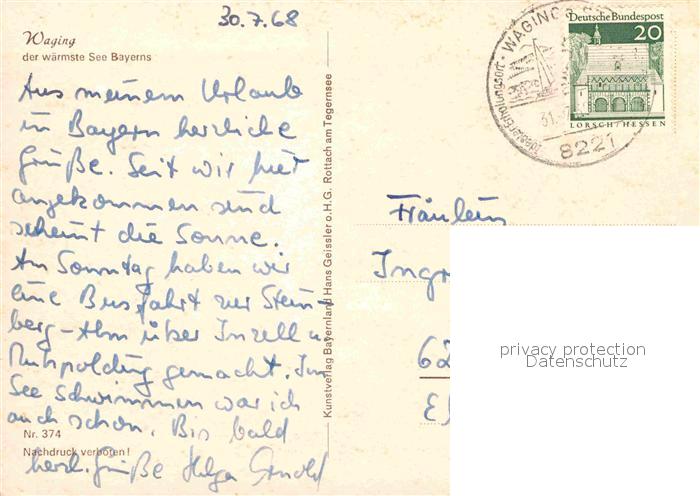 30.7.68
Waging
der wärmste See Bayerns
Aus meinem Urlaube
in Bayern herzliche
Grüße. Seit wir hier
angekommen sind
scheint die Sonne.
Am Sonntag haben wir
eine Busfahrt zur Stein-
berg-Alm über Inzell u.
Ruhpolding gemacht. Im
See schwimmen war ich
auch schon. Bis bald
herzl. Grüße Helga Arnold
Nr. 374
Nachdruck verboten!
Kunstverlag Bayernland Hans Geissler o.H.G. Rottach am Tegernsee
WAGING
31.
8221
Deutsche Bundespost
20
LORSCH/HESSEN
Fräulein
Ingr
62
El
privacy protection
Datenschutz